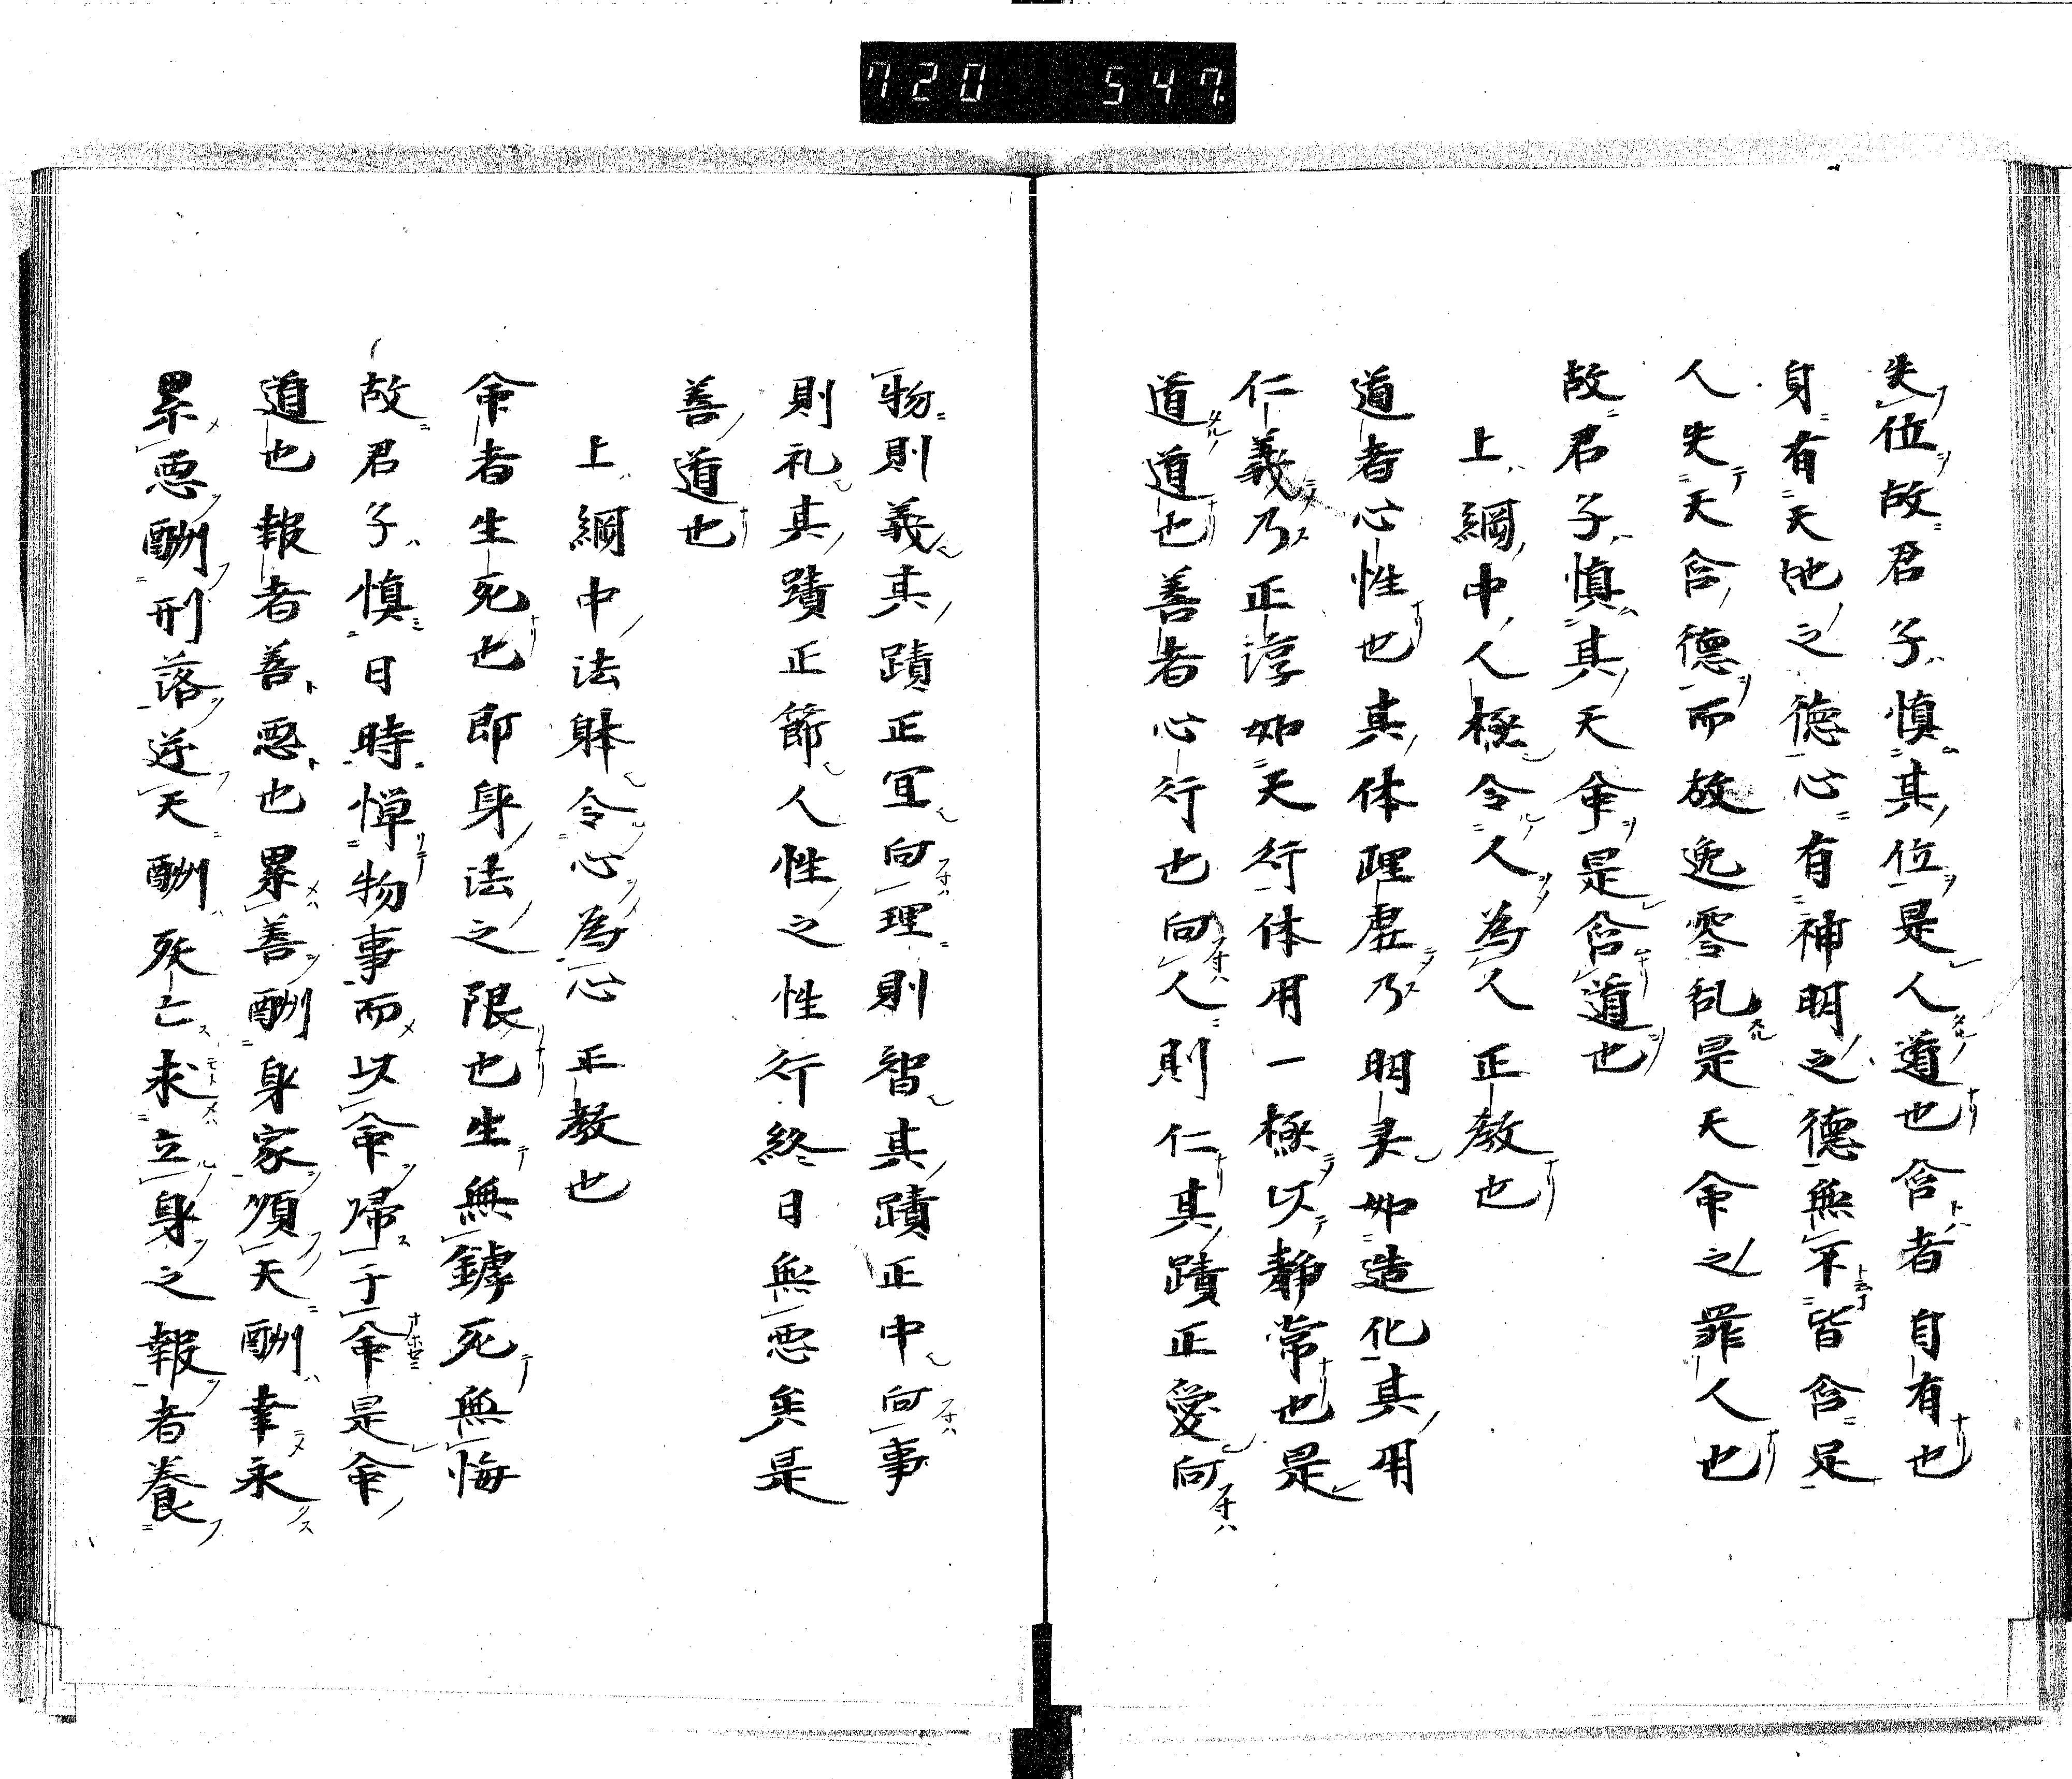 720 547.
失位故君子慎其位是人道也含者自有也
身有天地之德心有神明之德無不皆含足
人失天含德而放逸零乱是天命之罪人也
故君子慎其天命是含道也
上綱中人極令人為人正教也
道者心性也其体理虚乃明灵如造化其用
仁義乃正淳如天行体用一極以静常也是
道道也善者心行也向人則仁其蹟正愛向
物則義其蹟正宜向理則智其蹟正中向事
則礼其蹟正節人性之性行終日無悪矣是
善道也
上綱中法躰令心為心正教也
命者生死也即身法之限也生無罅死無悔
故君子慎日時憚物事而以命帰于命是命
道也報者善悪也累善酬身家順天酬幸永
累悪酬刑落逆天酬殀亡求立身之報者養